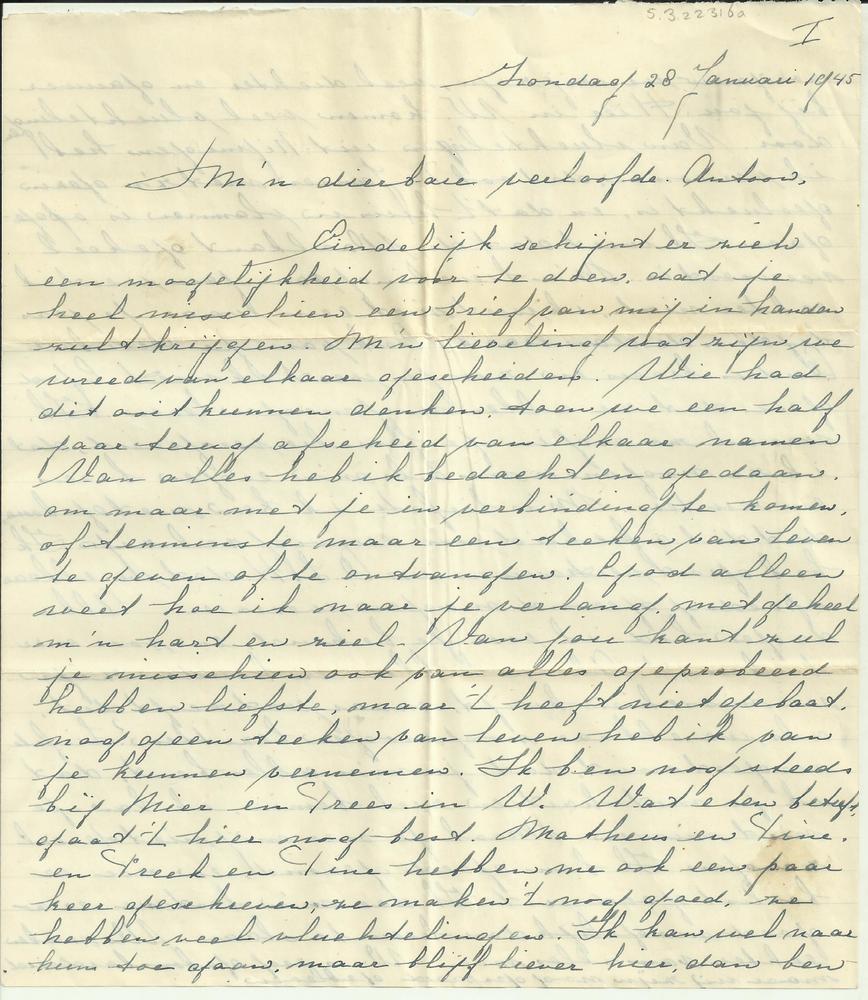 5.3.22316a
I
Zondag 28 Januari 1945
M'n dierbare verloofde. Antoon,
Eindelijk schijnt er zich
een mogelijkheid vóór te doen, dat je
heel misschien een brief van mij in handen
zult krijgen. M'n lieveling wat zijn we
wreed van elkaar gescheiden. Wie had
dit ooit kunnen denken, toen we een half
jaar terug afscheid van elkaar namen
Van alles heb ik bedacht en gedaan,
om maar met je in verbinding te komen,
of tenminste maar een teeken van leven
te geven of te ontvangen. God alleen
weet hoe ik naar je verlang, met geheel
m'n hart en ziel. Van jou kant zul
je misschien ook van alles geprobeerd
hebben liefste, maar 't heeft niet gebaat.
nog geen teeken van leven heb ik van
je kunnen vernemen. Ik ben nog steeds
bij Mier en Trees in W. Wat eten betreft,
gaat 't hier nog best. Matheus en Tine.
en Treek en Tine hebben me ook een paar
keer geschreven, ze maken 't nog goed, ze
hebben veel vluchtelingen. Ik kan wel naar
hun toe gaan, maar blijf liever hier, dan ben